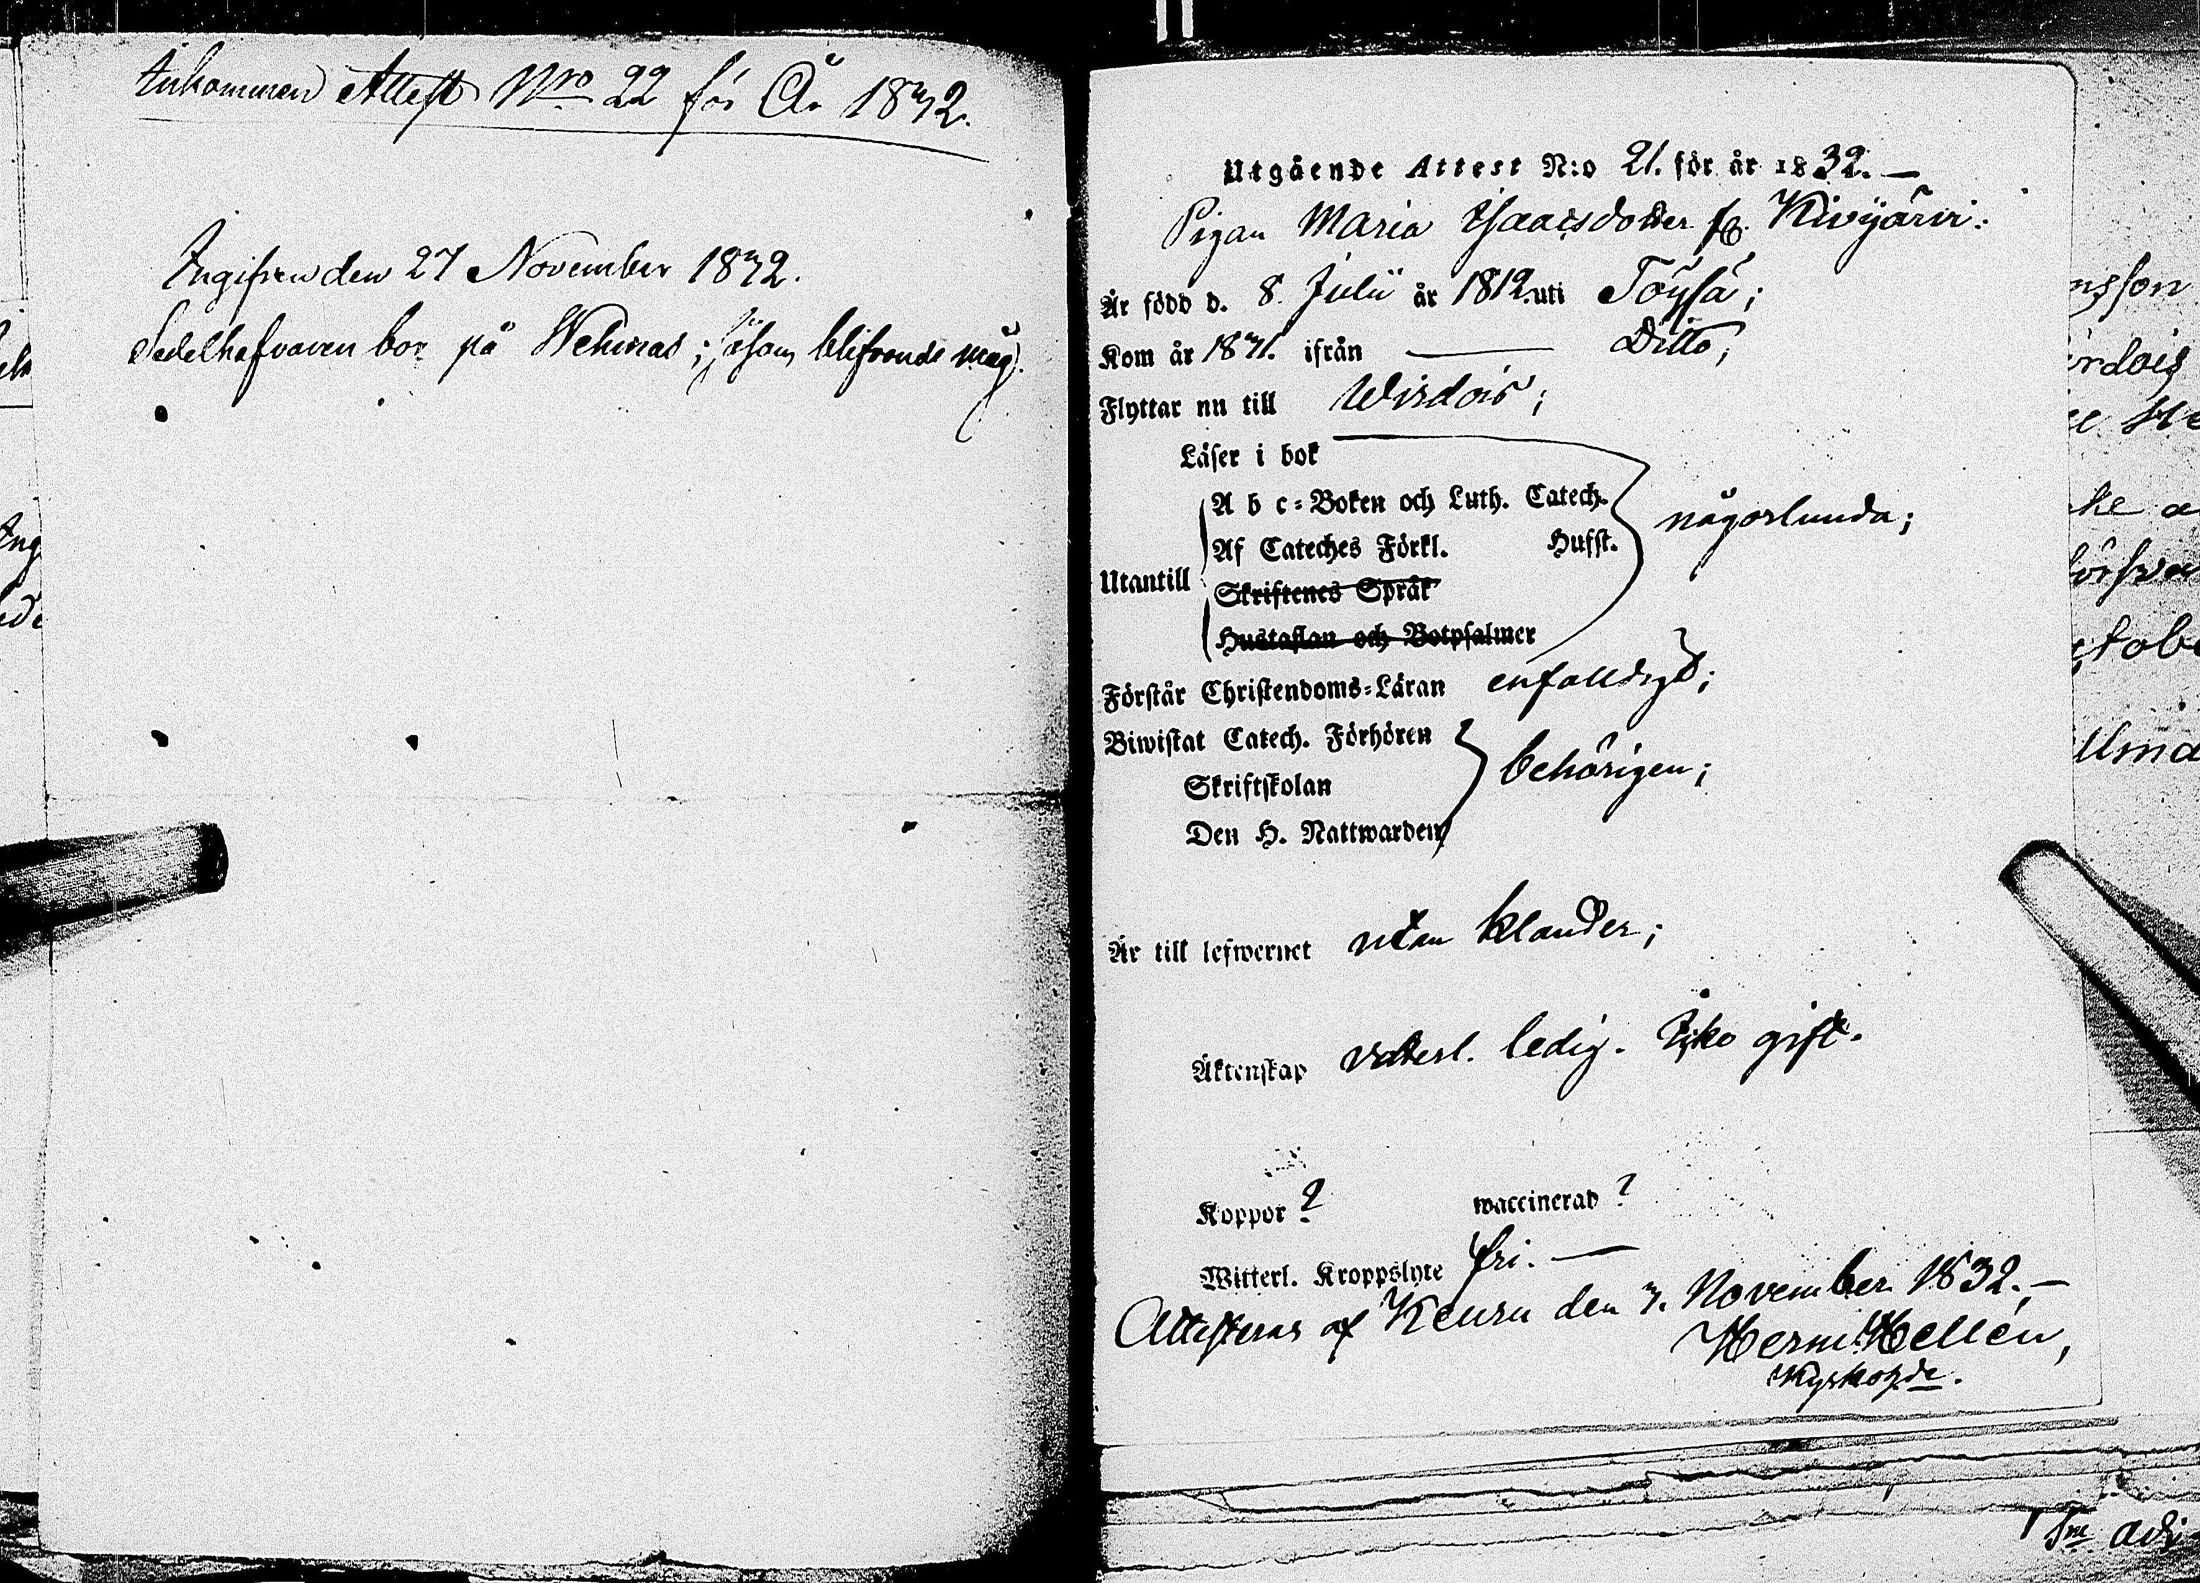 Inkommen Attest Nro 22 för År 1832.
Ingifven den 27 November 1832.
Sedelhafvaren bor på ; såsom blifvande måg.
Utgående Attest N:o 21. för år 1832. —
Pigan Maria Isaacsdotter fr. Kivijärvi:
Är född d. 8. Julii år 1812. uti Töysä;
Kom år 1831. ifrån — Ditto;
Flyttar nu till Wirdois;
Läser i bok
A b c=Boken och Luth. Catech.
någorlunda;
Af Cateches Förkl. Husst.
Utantill
Skriftenes Språk
Hustaflan och Botpsalmer
Förstår Christendoms=Läran enfalldigt;
Biwistat Catech. Förhören
behörigen;
Skriftskolan
Den H. Nattwarden
Är till lefwernet utan klander;
Äktenskap veterl. ledig. Icke gift.
Koppor ? waccinerad ?
Witterl. Kroppslyte fri. —
Attesteras af Keuru den 7. November 1832. —
Herm. Hellén,